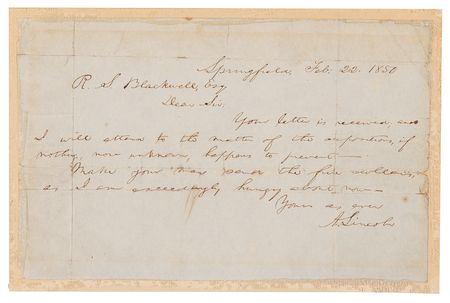 Springfield, Feb. 22. 1850
R. S. Blackwell, Esq
Dear Sir:
Your letter is received, and
I will attend to the matter of the supersedeas, if
nothing, now unknown, happens to prevent—
Make your man send the five dollars,
as I am exceedingly hungry about now—
Yours as ever
A. Lincoln